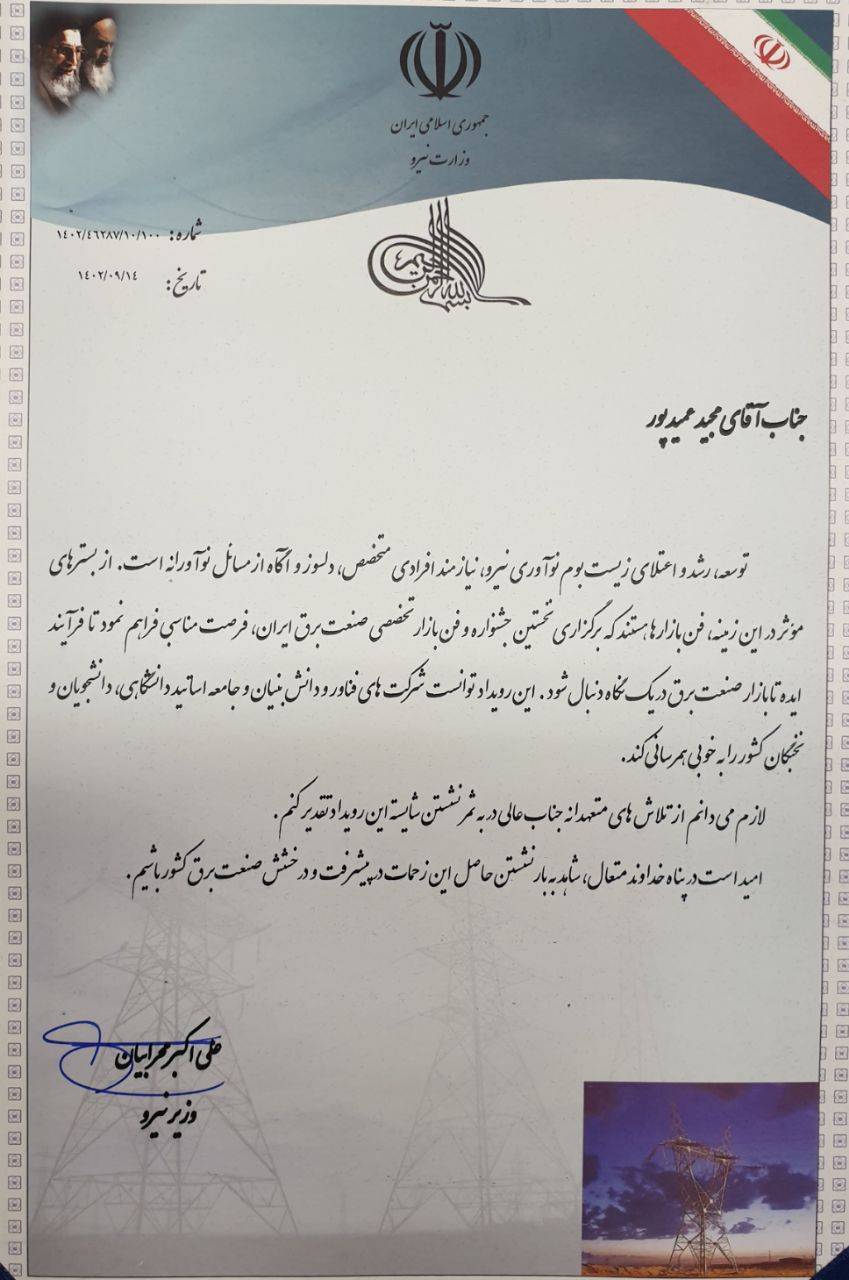 جمهوری اسلامی ایران
وزارت نیرو
بسم الله الرحمن الرحیم
شماره: ۱۴۰۲/۴۶۲۸۷/۱۰/۱۰۰
تاریخ: ۱۴۰۲/۰۹/۱۴
جناب آقای مجید عمیدپور
توسعه، رشد و اعتلای زیست بوم نوآوری نیرو، نیازمند افرادی متخصص، دلسوز و آگاه از مسائل نوآورانه است. از بسترهای
مؤثر در این زمینه، فن بازارها هستند که برگزاری نخستین جشنواره و فن بازار تخصصی صنعت برق ایران، فرصت مناسبی فراهم نمود تا فرآیند
ایده تا بازار صنعت برق در یک نگاه دنبال شود. این رویداد توانست شرکت های فناور و دانش بنیان و جامعه اساتید دانشگاهی، دانشجویان و
نخبگان کشور را به خوبی همرسانی کند.
لازم می دانم از تلاش های متعهدانه جناب عالی در به ثمر نشستن شایسته این رویداد تقدیر کنم.
امید است در پناه خداوند متعال، شاهد به بار نشستن حاصل این زحمات در پیشرفت و درخشش صنعت برق کشور باشیم.
علی اکبر محرابیان
وزیر نیرو